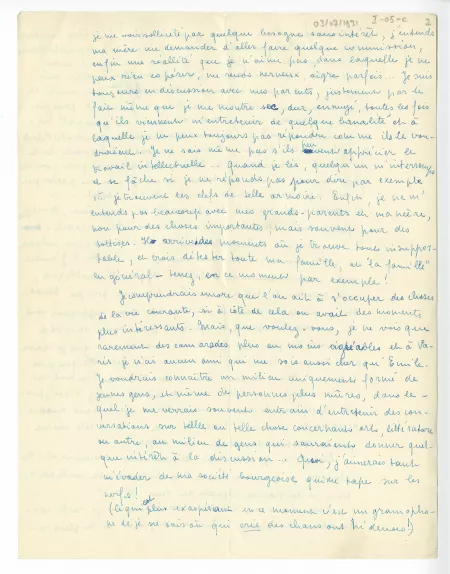 03/07/1931 I-05-c 2
je me vois sollicité par quelque besogne sans intérêt, j'entends
ma mère me demander d'aller faire quelque commission,
enfin une réalité que je n'aime pas, dans laquelle je ne
peux rien espérer, me rends nerveux, aigre parfois... Je suis
toujours en discussion avec mes parents, justement par le
fait même que je me montre sec, dur, ennuyé, toutes les fois
qu'ils viennent m'entretenir de quelque banalité et à
laquelle je ne peux toujours pas répondre comme ils le vou-
draient. Je ne sais même pas s'ils peuvent apprécier le
travail intellectuel... Quand je lis, quelqu'un m'interrompt
et se fâche si je ne réponds pas pour dire par exemple
où je trouverai les clefs de telle armoire. Enfin, je ne m'
entends pas beaucoup avec mes grands-parents et ma mère,
non pour des choses importantes, mais souvent pour des
sottises. Il arrive des moments où je trouve tout insuppor-
table, et vrais détester toute ma famille, et "la famille"
en général - tenez, en ce moment par exemple!
Je comprendrais encore que l'on ait à s'occuper des choses
de la vie courante, si à côté de cela on avait des moments
plus intéressants. Mais, que voulez-vous, je ne vois que
rarement des camarades plus ou moins agréables et à Pa-
ris je n'ai aucun ami qui me soit aussi cher qu'Emile.
Je voudrais connaître un milieu uniquement formé de
jeunes gens, et même de personnes plus mûres, dans le-
quel je me verrais souvent en train d'entretenir des con-
versations sur telle ou telle chose concernant art, littérature
ou autre, au milieu de gens qui sauraient donner quel-
que intérêt à la discussion... Quoi, j'aimerais tant
m'évader de ma société bourgeoise qui me tape sur les
nerfs!
(Ce qui est plus exaspérant en ce moment c'est un gramopho-
ne de je ne sais où qui crie des chansons hideuses!)